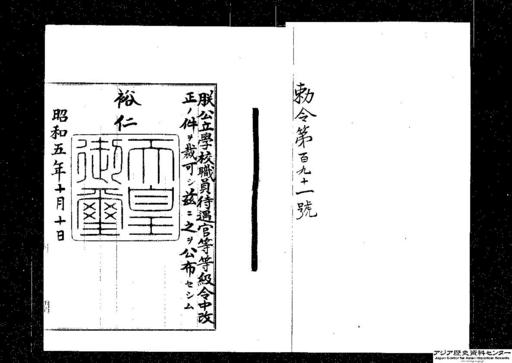 勅令第百九十一號
朕公立學校職員待遇官等等級令中改
正ノ件ヲ裁可シ茲ニ之ヲ公布セシム
裕仁
天皇
御璽
昭和五年十月十日
アジア歴史資料センター
Japan Center for Asian Historical Records